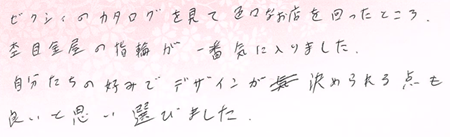 ゼクシィのカタログを見て色々なお店を回ったところ、
杢目金屋の指輪が一番気に入りました。
自分たちの好みでデザインが決められる点も
良いと思い選びました。